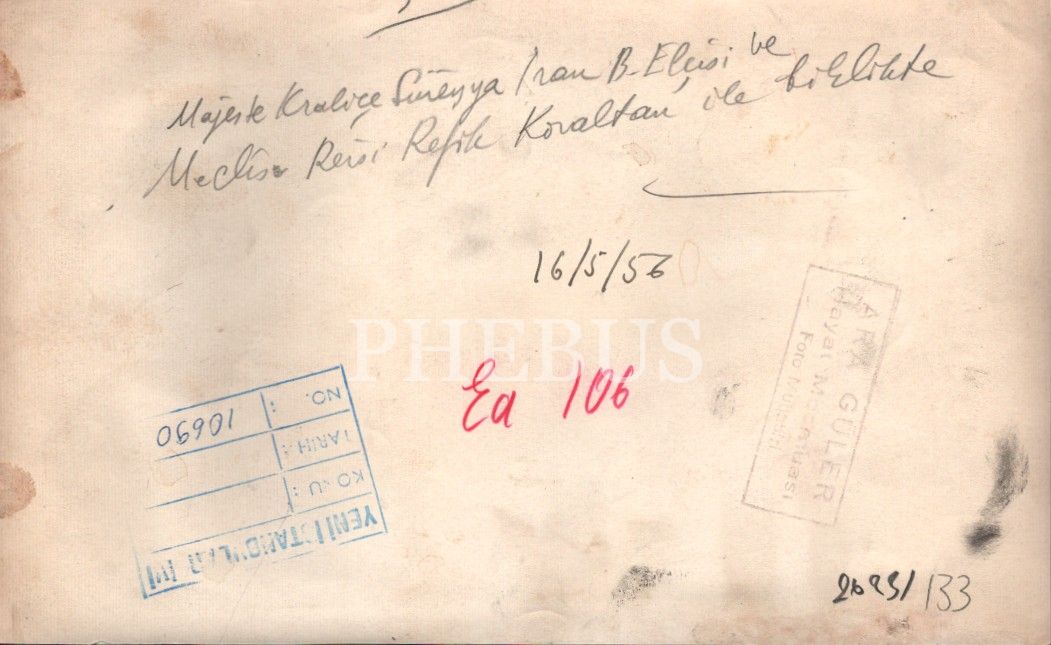 Majeste Kraliçe Süreyya İran B. Elçisi ve
Meclis Reisi Refik Koraltan ile birlikte
16/5/56
PHEBUS
Ea 106
ARA GÜLER
Hayat Mecmuası
Foto Muhabiri
NO. : 10690
TARİH :
KONU :
YENİ İSTANBUL
133